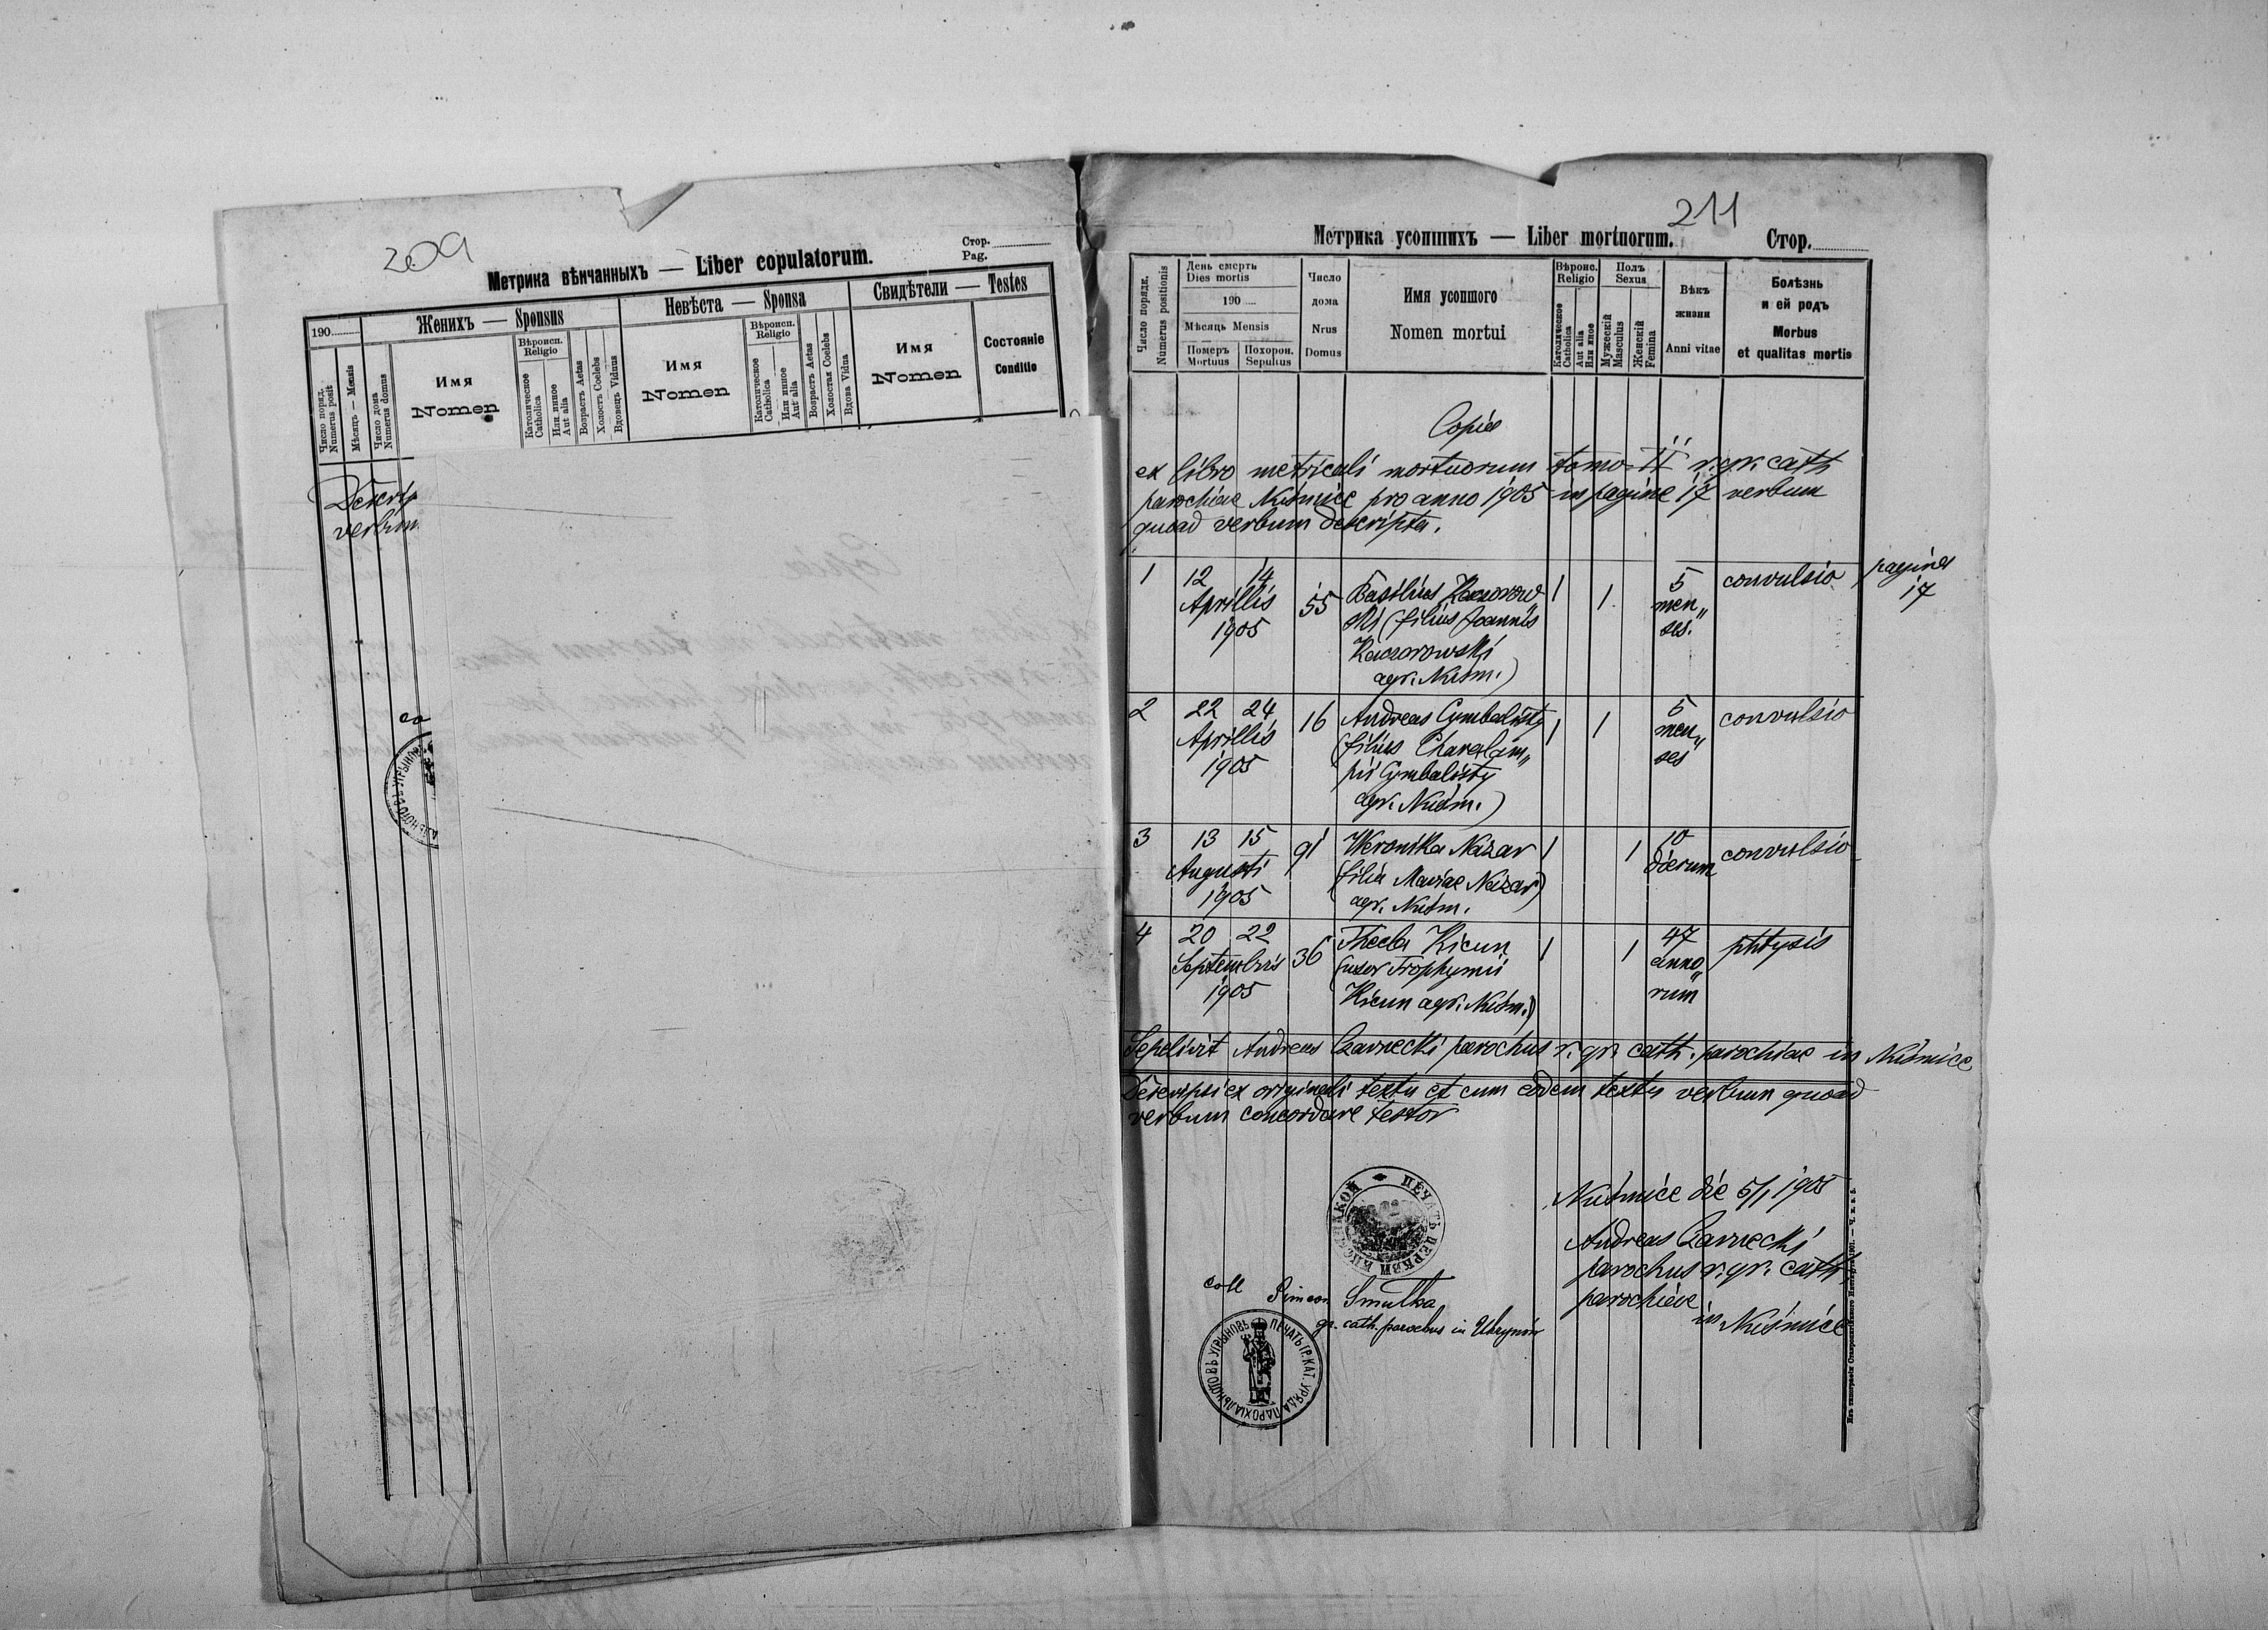 209
Метрика вѣнчанныхъ — Liber copulatorum.
Стор.
Pag.
190
Женихъ — Sponsus
Невѣста — Sponsa
Свидѣтели — Testes
Число поряд.
Numerus posit
Мѣсяць — Mensis
Число дома
Numerus domus
Имя
Nomen
Вѣроисп.
Religio
Католическое
Catholica
Или инное
Aut alia
Возрастъ Aetas
Холостъ Coelebs
Вдовецъ Viduus
Имя
Nomen
Вѣроисп.
Religio
Католическое
Catholica
Или инное
Aut alia
Возрастъ Aetas
Холостая Coelebs
Вдова Vidua
Имя
Nomen
Состояніе
Conditio
Descrip
verbum
co
211
Метрика усопшихъ — Liber mortuorum.
Стор.
Число порядк.
Numerus positionis
День смерть
Dies mortis
190
Мѣсяць Mensis
Померъ
Mortuus
Похорон.
Sepultus
Число
дома
Nrus
Domus
Имя усопшого
Nomen mortui
Вѣроис.
Religio
Католическое
Catholica
Aut alia
Или иное
Полъ
Sexus
Мужескій
Masculus
Женскій
Femina
Вѣкъ
жизни
Anni vitae
Болѣзнь
и ей родъ
Morbus
et qualitas mortis
Copia
ex libro metricali mortuorum tomo II r. gr. cath
parochiae Nuśmice pro anno 1905 in pagina 17 verbum
quoad verbum descripta.
1 12 14 Aprillis 1905 55 Basilius Kaczorow
ski (filius Joannis
Kaczorowski
agr. Nuśm.) 1 1 5 men„ ses. convulsio pagina 17
2 22 24 Aprillis 1905 16 Andreas Cymbalisty
(filius Charalam„
pii Cymbalisty
agr. Nuśm.) 1 1 5 men„ ses convulsio
3 13 15 Augusti 1905 91 Weronika Nazar
(filia Mariae Nazar)
agr. Nuśm. 1 1 10 dierum convulsio
4 20 22 Septembris 1905 36 Thecla Kicun
(uxor Trophymii
Kicun agr. Nuśm.) 1 1 47 anno„ rum phtysis
Sepelivit Andreas Czarnecki parochus r. gr. cath. parochiae in Nuśmice
Descripsi ex originali textu et cum eodem textu verbum quoad
verbum concordare testor
Nuśmice die 5/1 1908
Andreas Czarnecki
parochus r. gr. cath
parochiae
in Nuśmice
coll Simeon Smulka
gr. cath. parochus in Uhrynów
ПЕЧАТЬ ГР. КАТ. УРЯДА ПАРОХІАЛЬНОГО ВЪ УГРЫНОВЪ
ПЕЧАТЬ ЦЕРКВИ